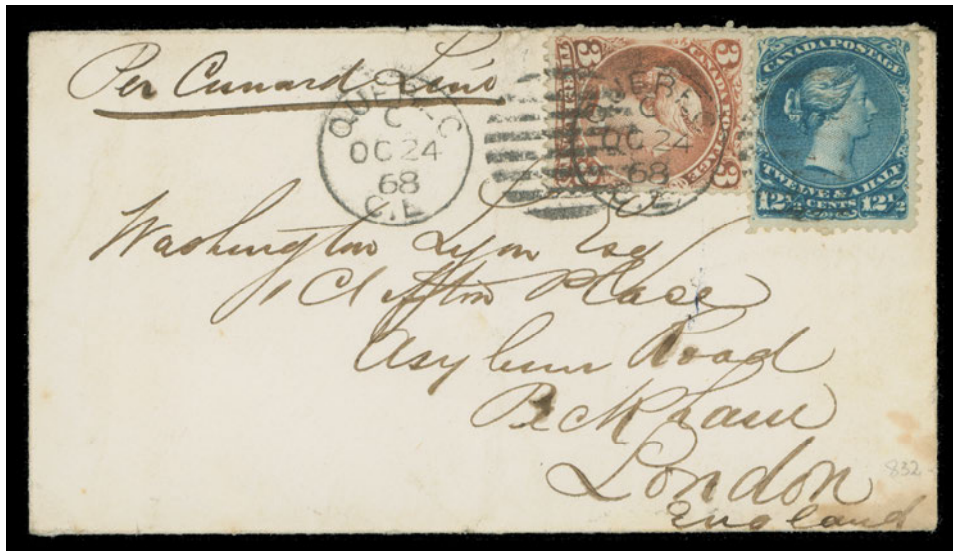 Per Cunard Line
QUEBEC
C
OC 24
68
C.E
3 3
CANADA POSTAGE
3 3
UEBEC
C
OC 24
68
CANADA POSTAGE
TWELVE & A HALF
12½ CENTS 12½
Washington Lyon Esq
1 Clifton Place
Asylum Road
Peckham
London
England
832